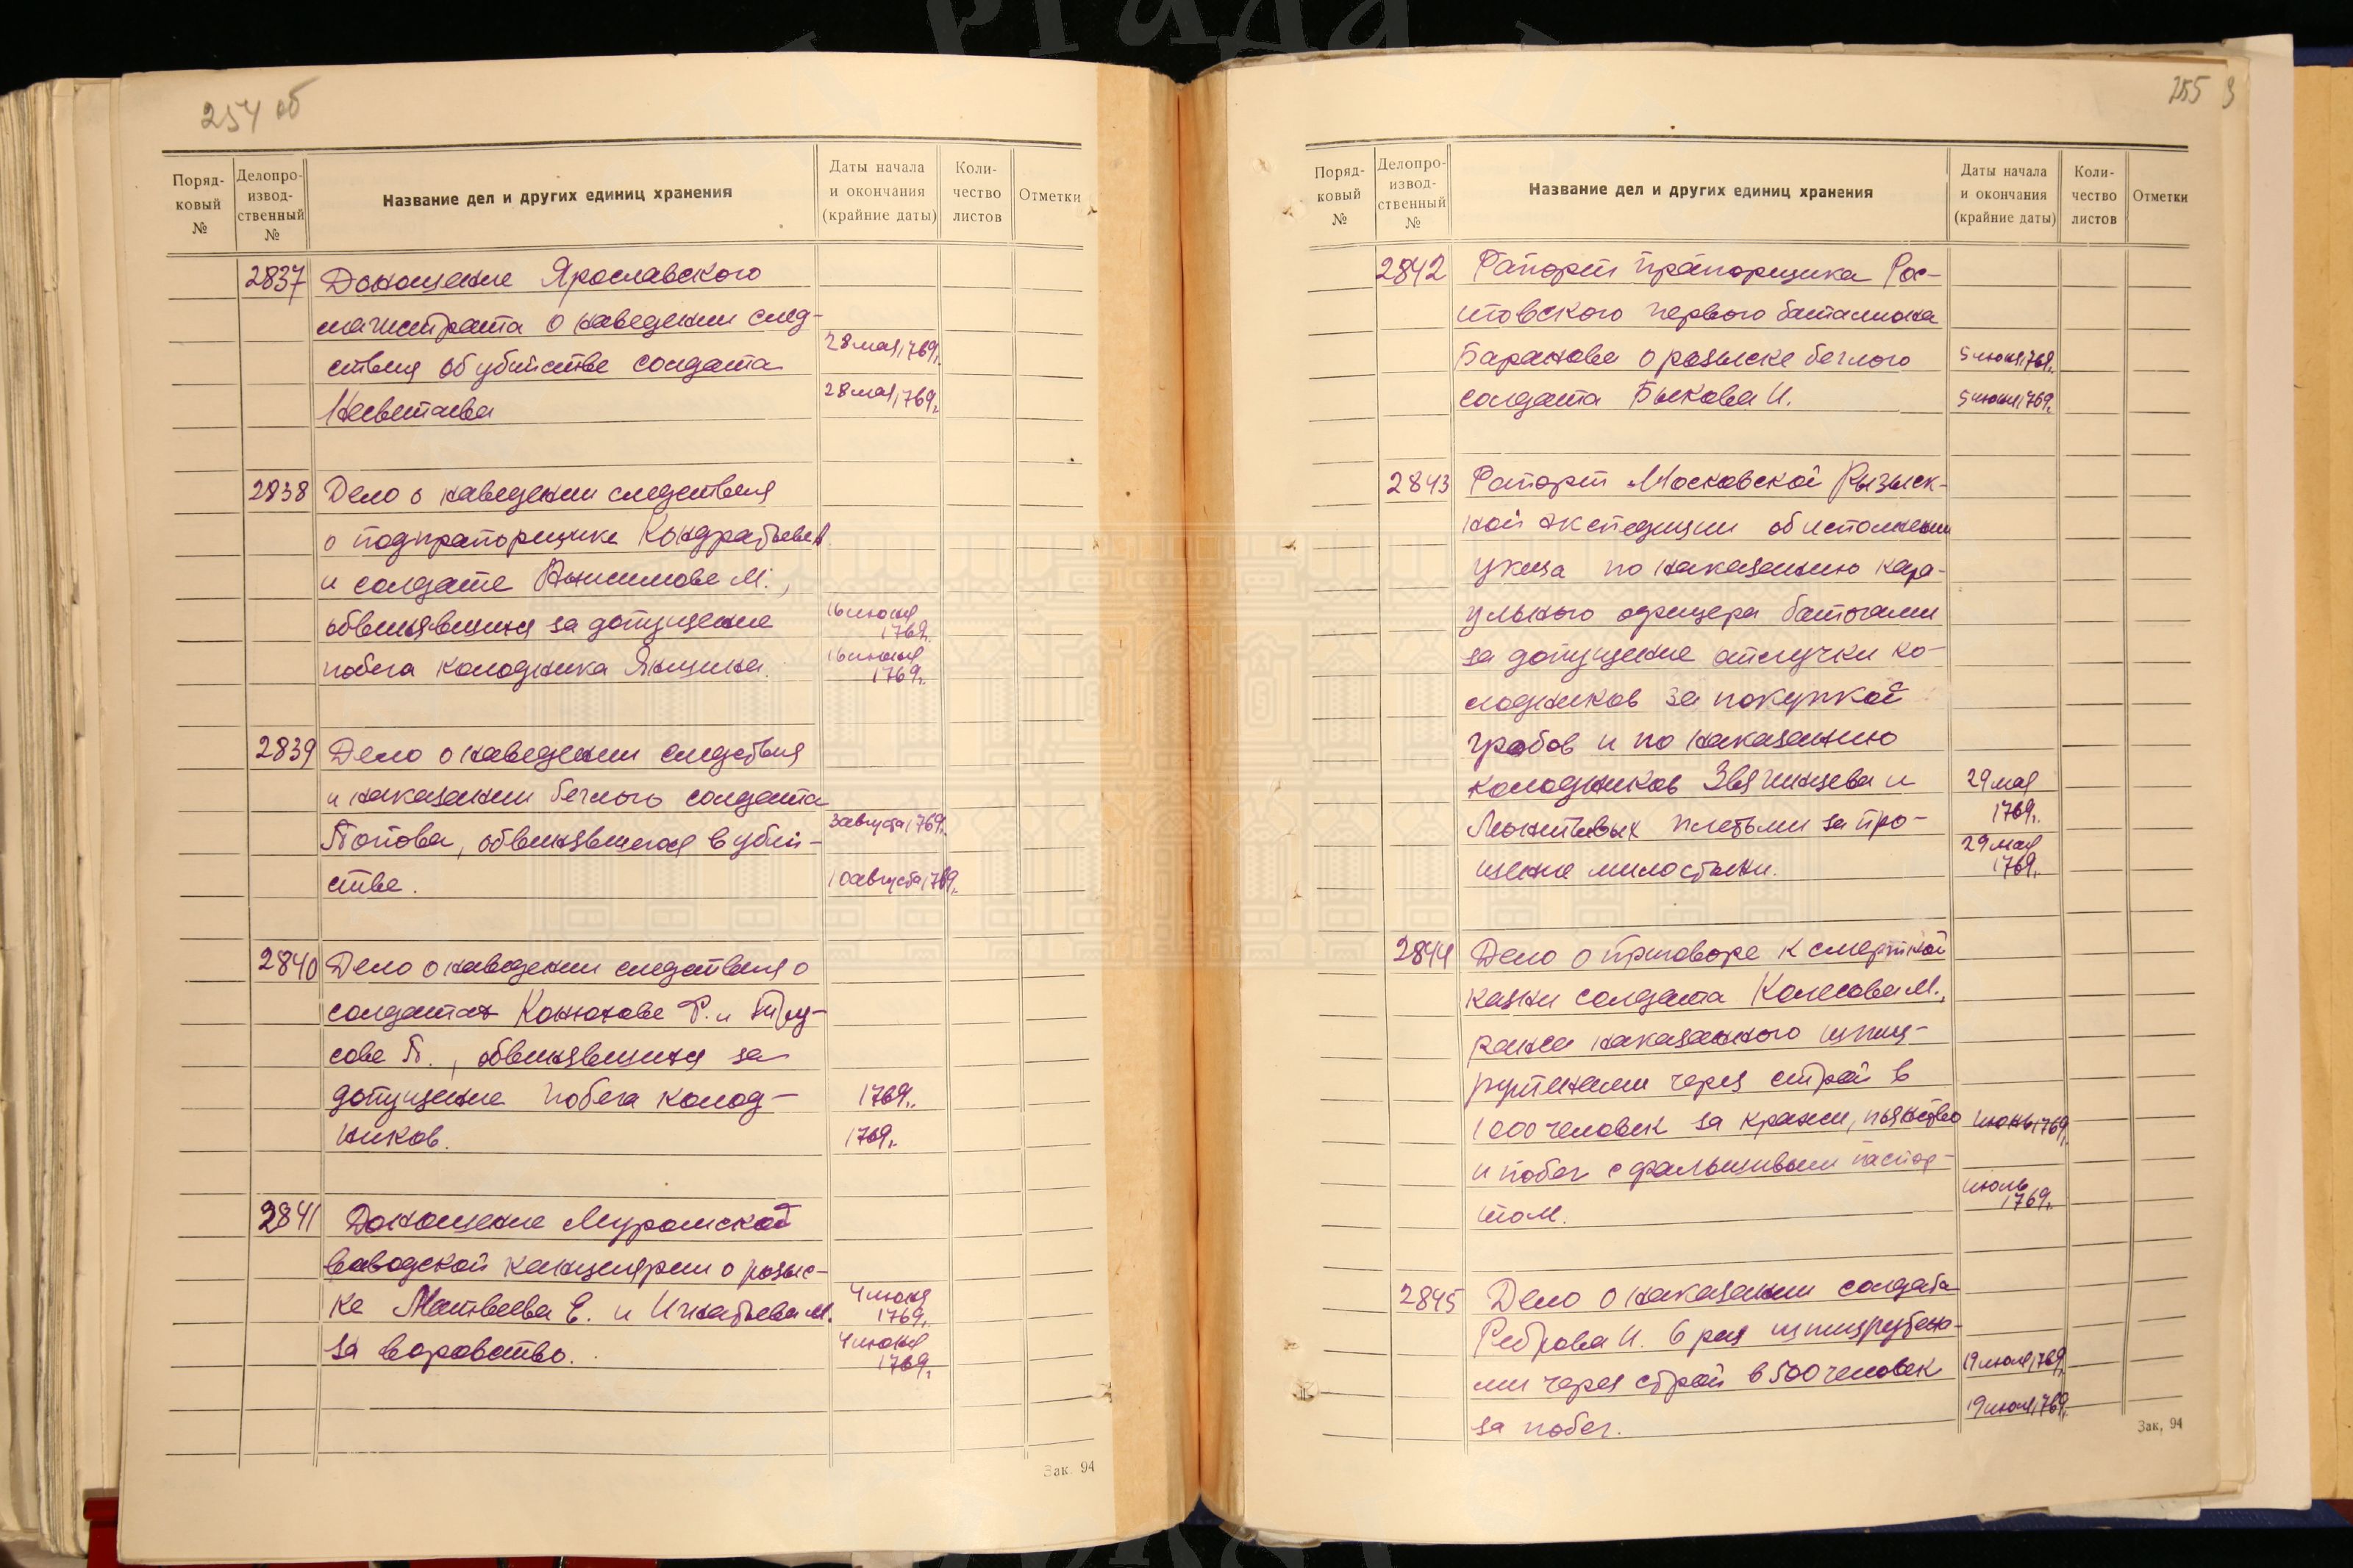 254 об
Поряд-
ковый
№
Делопро-
извод-
ственный
№
Название дел и других единиц хранения
Даты начала
и окончания
(крайние даты)
Коли-
чество
листов
Отметки
2837 Доношение Ярославского
магистрата о наведении след-
ствия об убийстве солдата 28 мая 1769г.
Несветаева 28 мая 1769г.
2838 Дело о наведении следствия
о подпрапорщике Кондратьеве А.
и солдате Анисимове М.,
обвинявшихся за допущение 16 июня 1769г.
побега колодника Яншина. 16 июня 1769г.
2839 Дело о наведении следствия
и наказании беглого солдата
Попова, обвинявшегося в убий- 3 августа 1769г.
стве. 10 августа 1769г.
2840 Дело о наведении следствия о
солдатах Конюхове Р. и Тру-
сове П., обвинявшихся за
допущение побега колод- 1769г.
ников. 1769г.
2841 Доношение Муромской
воеводской канцелярии о розыс-
ке Матвеева Е. и Игнатьева М. 4 июня 1769г.
за воровство. 4 июня 1769г.
Зак. 94
255
Поряд-
ковый
№
Делопро-
извод-
ственный
№
Название дел и других единиц хранения
Даты начала
и окончания
(крайние даты)
Коли-
чество
листов
Отметки
2842 Рапорт прапорщика Рос-
товского первого баталиона
Баранова о розыске беглого 5 июня 1769г.
солдата Быкова И. 5 июня 1769г.
2843 Рапорт Московской Розыск-
ной экспедиции об исполнении
указа по наказанию кара-
ульного офицера батогами
за допущение отлучки ко-
лодников за покупкой
гробов и по наказанию
колодников Звягинцева и 29 мая
плетьми за про- 1769г.
щение милостыни. 29 мая 1769г.
2844 Дело о приговоре к смертной
казни солдата Колесова М.,
ранее наказанного шпиц-
рутенами через строй в
1000 человек за кражи, пьянство июнь 1769г.
и побег с фальшивым паспор-
том. июль 1769г.
2845 Дело о наказании солдата
Реброва И. 6 раз шпицрутена-
ми через строй в 500 человек 19 июля 1769г.
за побег. 19 июля 1769г.
Зак, 94